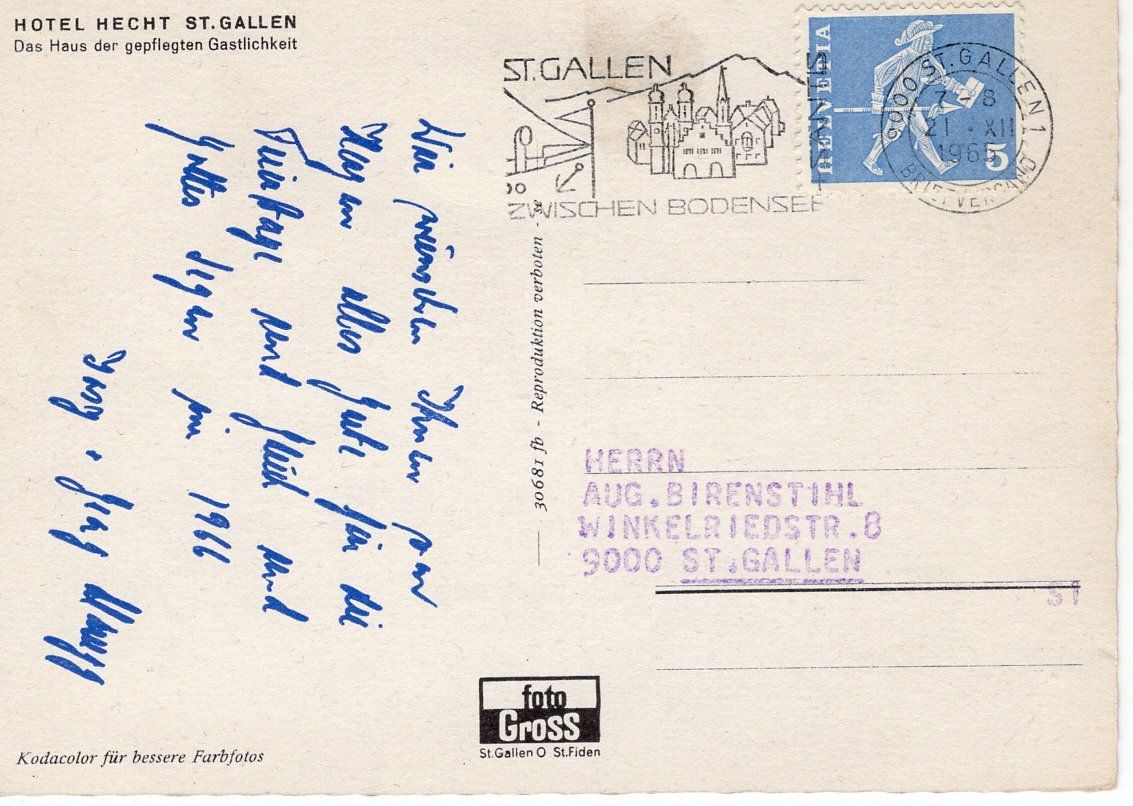 HOTEL HECHT ST. GALLEN
Das Haus der gepflegten Gastlichkeit
ST.GALLEN
ZWISCHEN BODENSEE
HELVETIA
5
9000 ST. GALLEN 1
21. XII
1965
BRIEFVERSAND
Wir wünschen Ihnen
alles Gute für die
Festtage und Glück und
Gottes Segen im 1966
30681 fb - Reproduktion verboten
HERRN
AUG.BIRENSTIHL
WINKELRIEDSTR.8
9000 ST.GALLEN
foto
Gross
St.Gallen O St.Fiden
Kodacolor für bessere Farbfotos